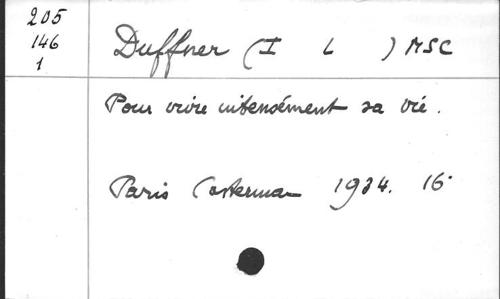 205
146
1
Duffner (I L ) MSC
Pour vivre intensément sa vie.
Paris Casterman 1934. 16°